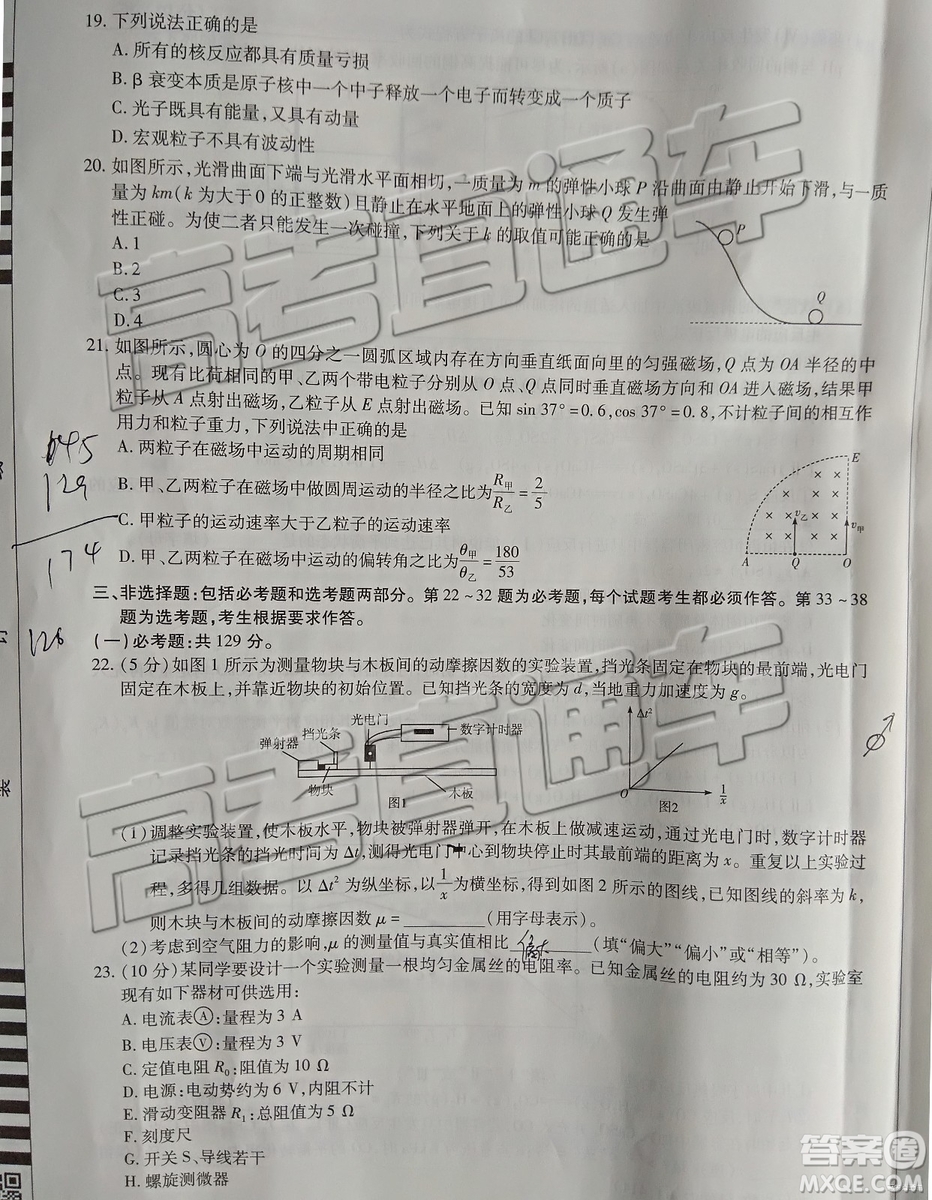 19. 下列说法正确的是
A. 所有的核反应都具有质量亏损
B. β 衰变本质是原子核中一个中子释放一个电子而转变成一个质子
C. 光子既具有能量,又具有动量
D. 宏观粒子不具有波动性
20. 如图所示,光滑曲面下端与光滑水平面相切,一质量为 m 的弹性小球 P 沿曲面由静止开始下滑,与一质
量为 km(k 为大于 0 的正整数)且静止在水平地面上的弹性小球 Q 发生弹
性正碰。为使二者只能发生一次碰撞,下列关于 k 的取值可能正确的是
A. 1
B. 2
C. 3
D. 4
P
Q
21. 如图所示,圆心为 O 的四分之一圆弧区域内存在方向垂直纸面向里的匀强磁场,Q 点为 OA 半径的中
点。现有比荷相同的甲、乙两个带电粒子分别从 O 点、Q 点同时垂直磁场方向和 OA 进入磁场,结果甲
粒子从 A 点射出磁场,乙粒子从 E 点射出磁场。已知 sin 37°=0.6,cos 37°=0.8,不计粒子间的相互作
用力和粒子重力,下列说法中正确的是
A. 两粒子在磁场中运动的周期相同
B. 甲、乙两粒子在磁场中做圆周运动的半径之比为R甲/R乙=2/5
C. 甲粒子的运动速率大于乙粒子的运动速率
D. 甲、乙两粒子在磁场中运动的偏转角之比为θ甲/θ乙=180/53
E
v乙
v甲
A Q O
129
174
126
三、非选择题:包括必考题和选考题两部分。第 22~32 题为必考题,每个试题考生都必须作答。第 33~38
题为选考题,考生根据要求作答。
(一)必考题:共 129 分。
22. (5 分)如图 1 所示为测量物块与木板间的动摩擦因数的实验装置,挡光条固定在物块的最前端,光电门
固定在木板上,并靠近物块的初始位置。已知挡光条的宽度为 d,当地重力加速度为 g。
弹射器
挡光条
光电门
数字计时器
物块
木板
图1
Δt²
O
1/x
图2
(1)调整实验装置,使木板水平,物块被弹射器弹开,在木板上做减速运动,通过光电门时,数字计时器
记录挡光条的挡光时间 Δt,测得光电门中心到物块停止时其最前端的距离为 x。重复以上实验过
程,多得几组数据。以 Δt² 为纵坐标,以1/x为横坐标,得到如图 2 所示的图线,已知图线的斜率为 k,
则木块与木板间的动摩擦因数 μ=________(用字母表示)。
(2)考虑到空气阻力的影响,μ 的测量值与真实值相比 偏大 (填“偏大”“偏小”或“相等”)。
23. (10 分)某同学要设计一个实验测量一根均匀金属丝的电阻率。已知金属丝的电阻约为 30 Ω,实验室
现有如下器材可供选用:
A. 电流表Ⓐ:量程为 3 A
B. 电压表Ⓥ:量程为 3 V
C. 定值电阻 R₀:阻值为 10 Ω
D. 电源:电动势约为 6 V,内阻不计
E. 滑动变阻器 R₁:总阻值为 5 Ω
F. 刻度尺
G. 开关 S、导线若干
H. 螺旋测微器
高考直通车
高考直通车
答案圈
MXQE.COM